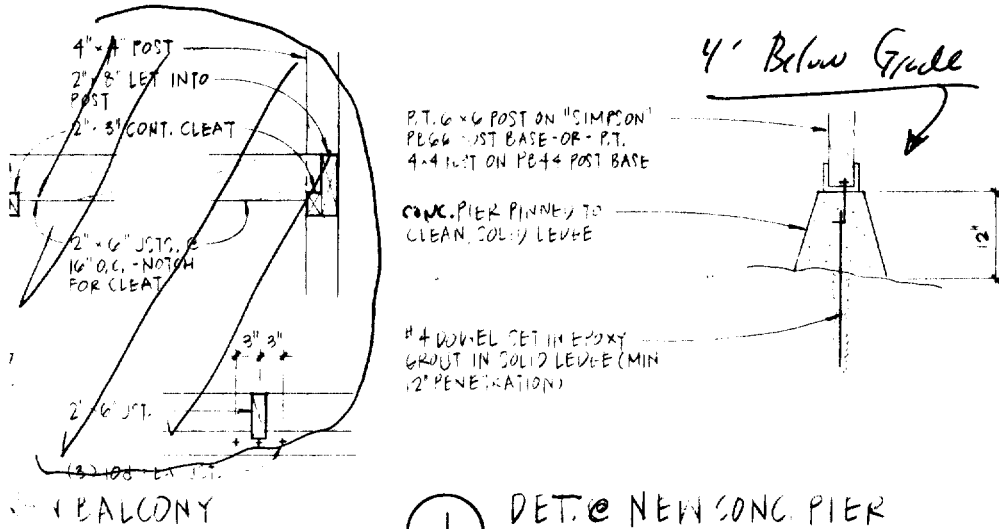 4" x 4" POST
2" x 8" LET INTO
POST
2" - 3" CONT. CLEAT
2" x 6" JSTS. @
16" O.C. - NOTCH
FOR CLEAT
3" 3"
2" x 6" JST.
BALCONY
4' Below Grade
P.T. 6 x 6 POST ON "SIMPSON"
PB66 POST BASE - OR - P.T.
4x4 POST ON PB44 POST BASE
CONC. PIER PINNED TO
CLEAN, SOLID LEDGE
12"
#4 DOWEL SET IN EPOXY
GROUT IN SOLID LEDGE (MIN
12" PENETRATION)
1
DET. @ NEW CONC. PIER